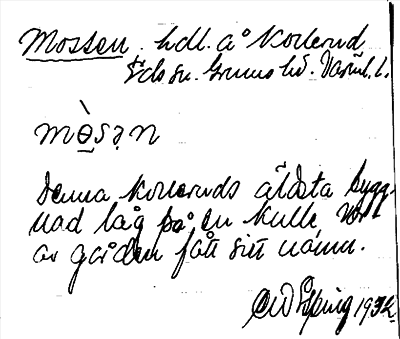 Mossen. hdl. å Kollerud
Eds sn. Grums hd. Värml. l.
mòsən
Denna Kolleruds äldsta bygg-
nad låg på en kulle,
av gården fått sitt namn.
1932